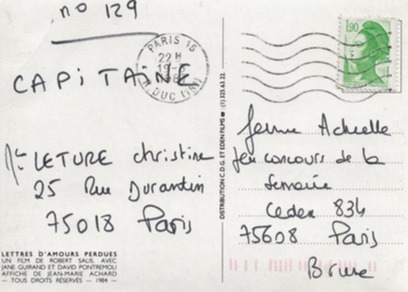 no 129
CAPITAINE
PARIS 16
22 H
19-5
R. DUC (16)
1,90
Mlle LETURE Christine
25 Rue Durantin
75018 Paris
LETTRES D'AMOURS PERDUES
UN FILM DE ROBERT SALIS, AVEC
JANE GUIRAND ET DAVID PONTREMOLI
AFFICHE DE JEAN-MARIE ACHARD
— TOUS DROITS RÉSERVÉS — 1984 —
DISTRIBUTION C.D.G. ET EDEN FILMS (1) 325.63.22.
Femme Actuelle
Jeu concours de la
Semaine
Cedex 834
75608 Paris
Brune